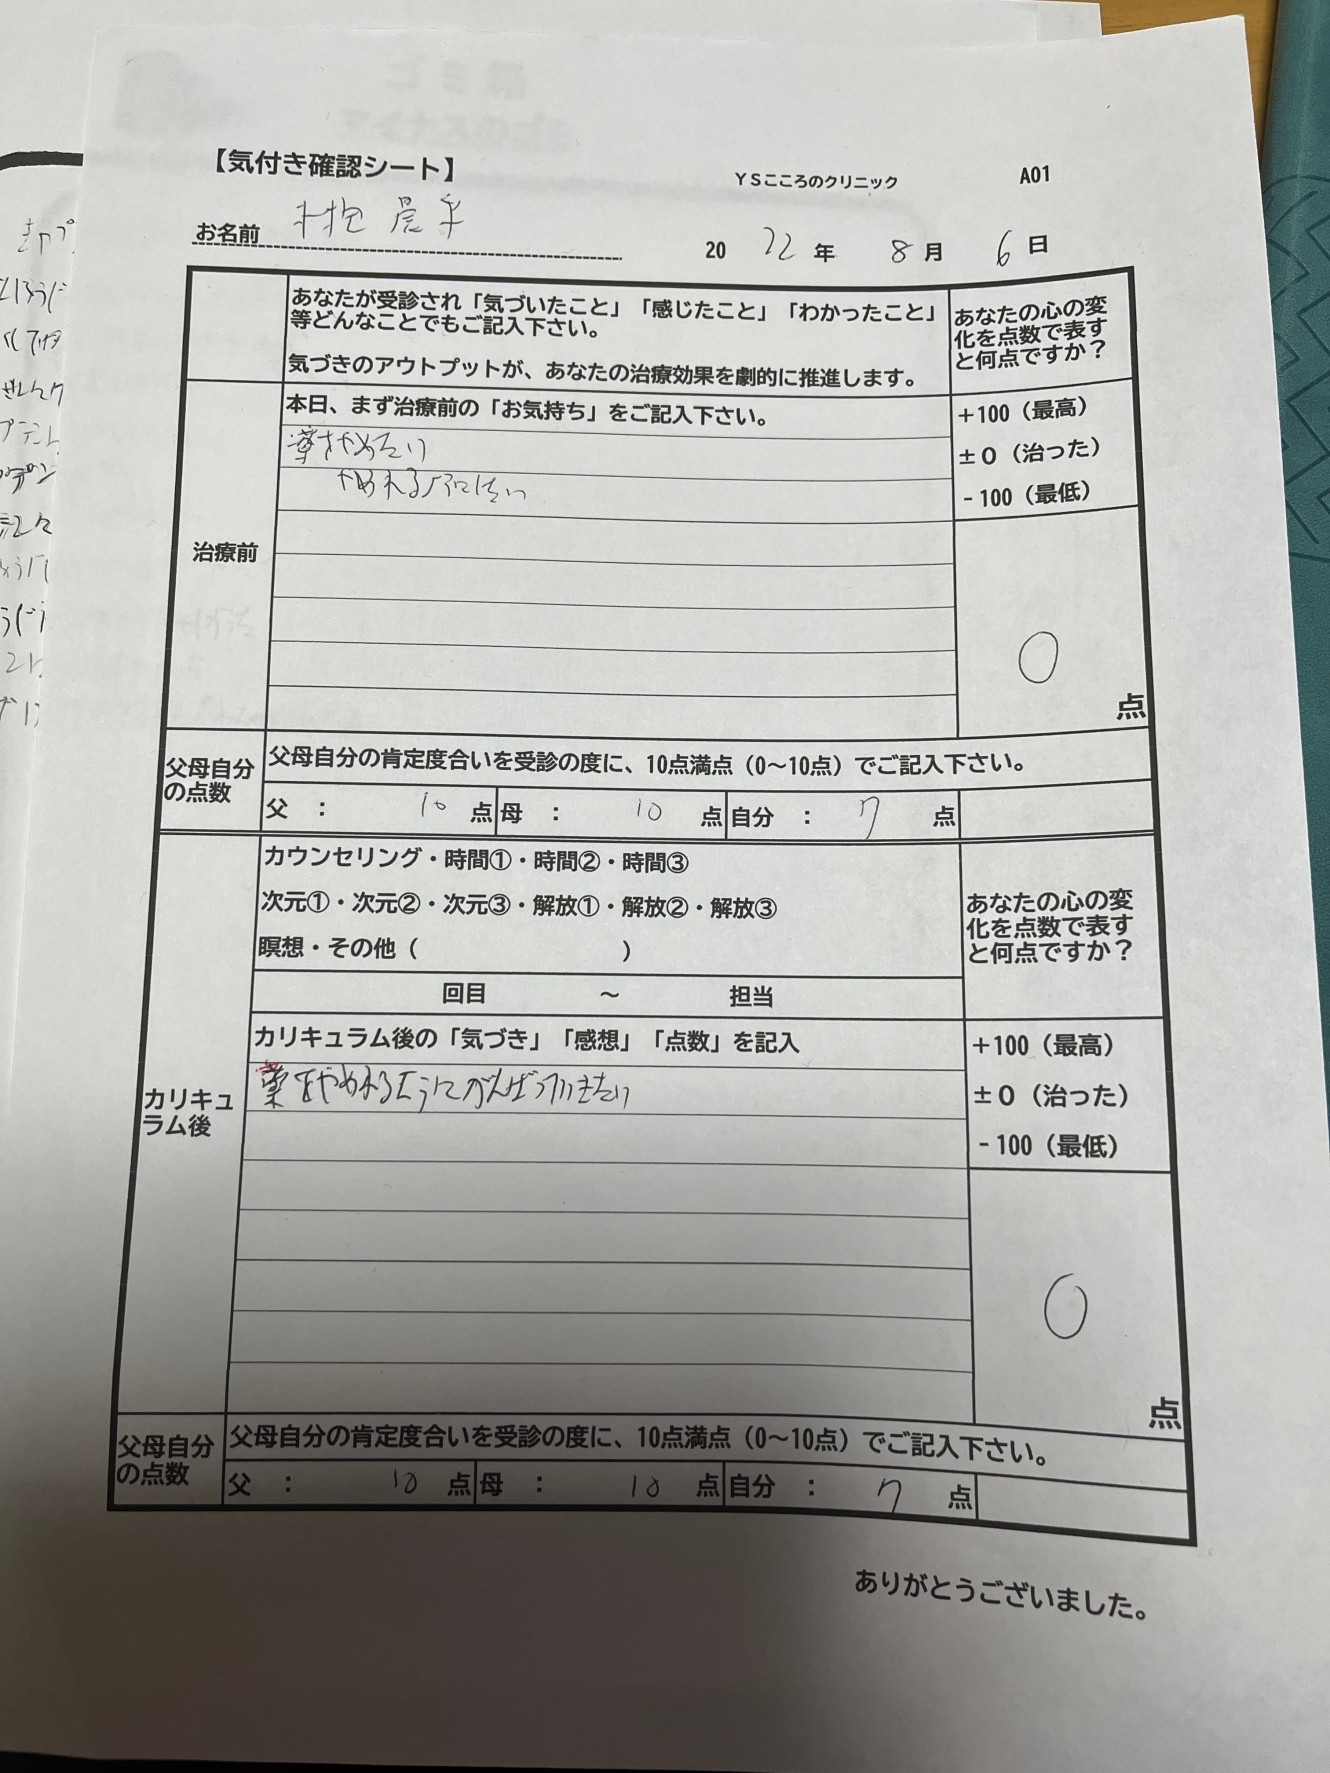 【気付き確認シート】
YSこころのクリニック
A01
お名前
20 22 年 8 月 6 日
あなたが受診され「気づいたこと」「感じたこと」「わかったこと」
等どんなことでもご記入下さい。
気づきのアウトプットが、あなたの治療効果を劇的に推進します。
あなたの心の変
化を点数で表す
と何点ですか？
治療前
本日、まず治療前の「お気持ち」をご記入下さい。
薬をやめたい
+100（最高）
±0（治った）
-100（最低）
0
点
父母自分
の点数
父母自分の肯定度合いを受診の度に、10点満点（0～10点）でご記入下さい。
父 ： 10 点 母 ： 10 点 自分 ： 7 点
カリキュ
ラム後
カウンセリング・時間①・時間②・時間③
次元①・次元②・次元③・解放①・解放②・解放③
瞑想・その他（ ）
回目 ～ 担当
あなたの心の変
化を点数で表す
と何点ですか？
カリキュラム後の「気づき」「感想」「点数」を記入
薬をやめれるようにがんばっていきたい
+100（最高）
±0（治った）
-100（最低）
0
点
父母自分
の点数
父母自分の肯定度合いを受診の度に、10点満点（0～10点）でご記入下さい。
父 ： 10 点 母 ： 10 点 自分 ： 7 点
ありがとうございました。